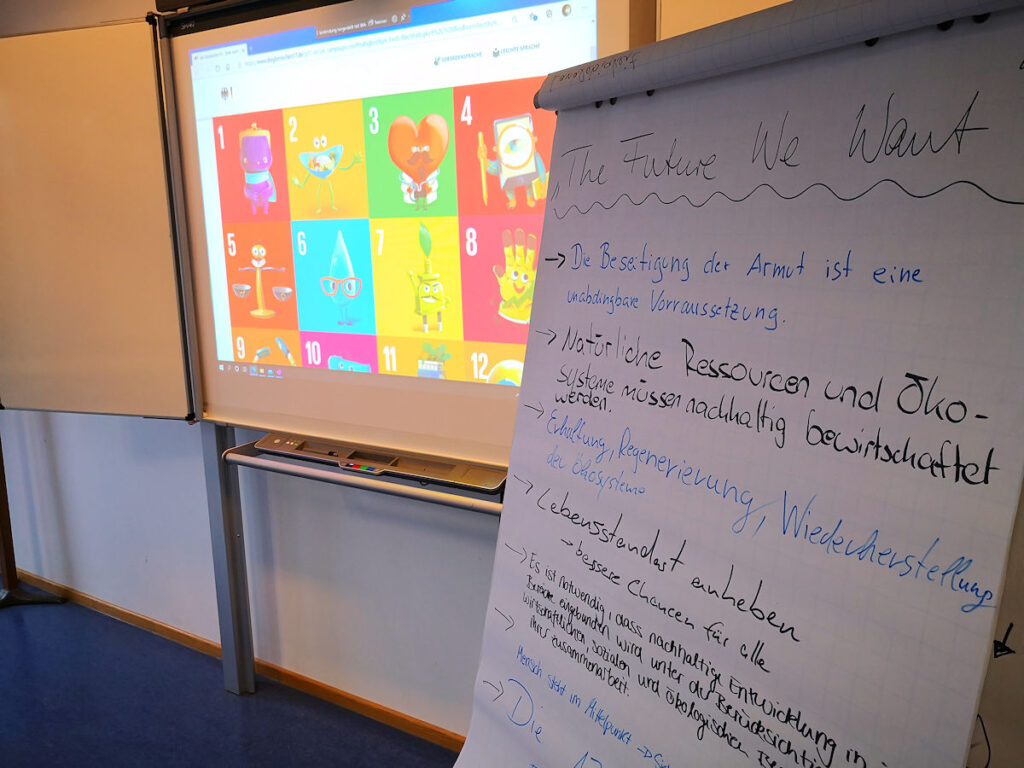 GEBÄRDENSPRACHE LEICHTE SPRACHE
1 2 3 4
5 6 7 8
9 10 11 12
"The Future We Want
→ Die Beseitigung der Armut ist eine
unabdingbare Vorraussetzung.
→ Natürliche Ressourcen und Öko-
systeme müssen nachhaltig bewirtschaftet
werden.
→ Erhaltung, Regenerierung, Wiederherstellung
der Ökosysteme
→ Lebensstandart anheben
→ bessere Chancen für alle
→ Es ist notwendig, dass nachhaltige Entwicklung in
eingebunden wird unter der
wirtschaftlichen, sozialen und ökologischen
ihrer zusammenarbeit.
→ Mensch steht im Mittelpunkt
→ Die